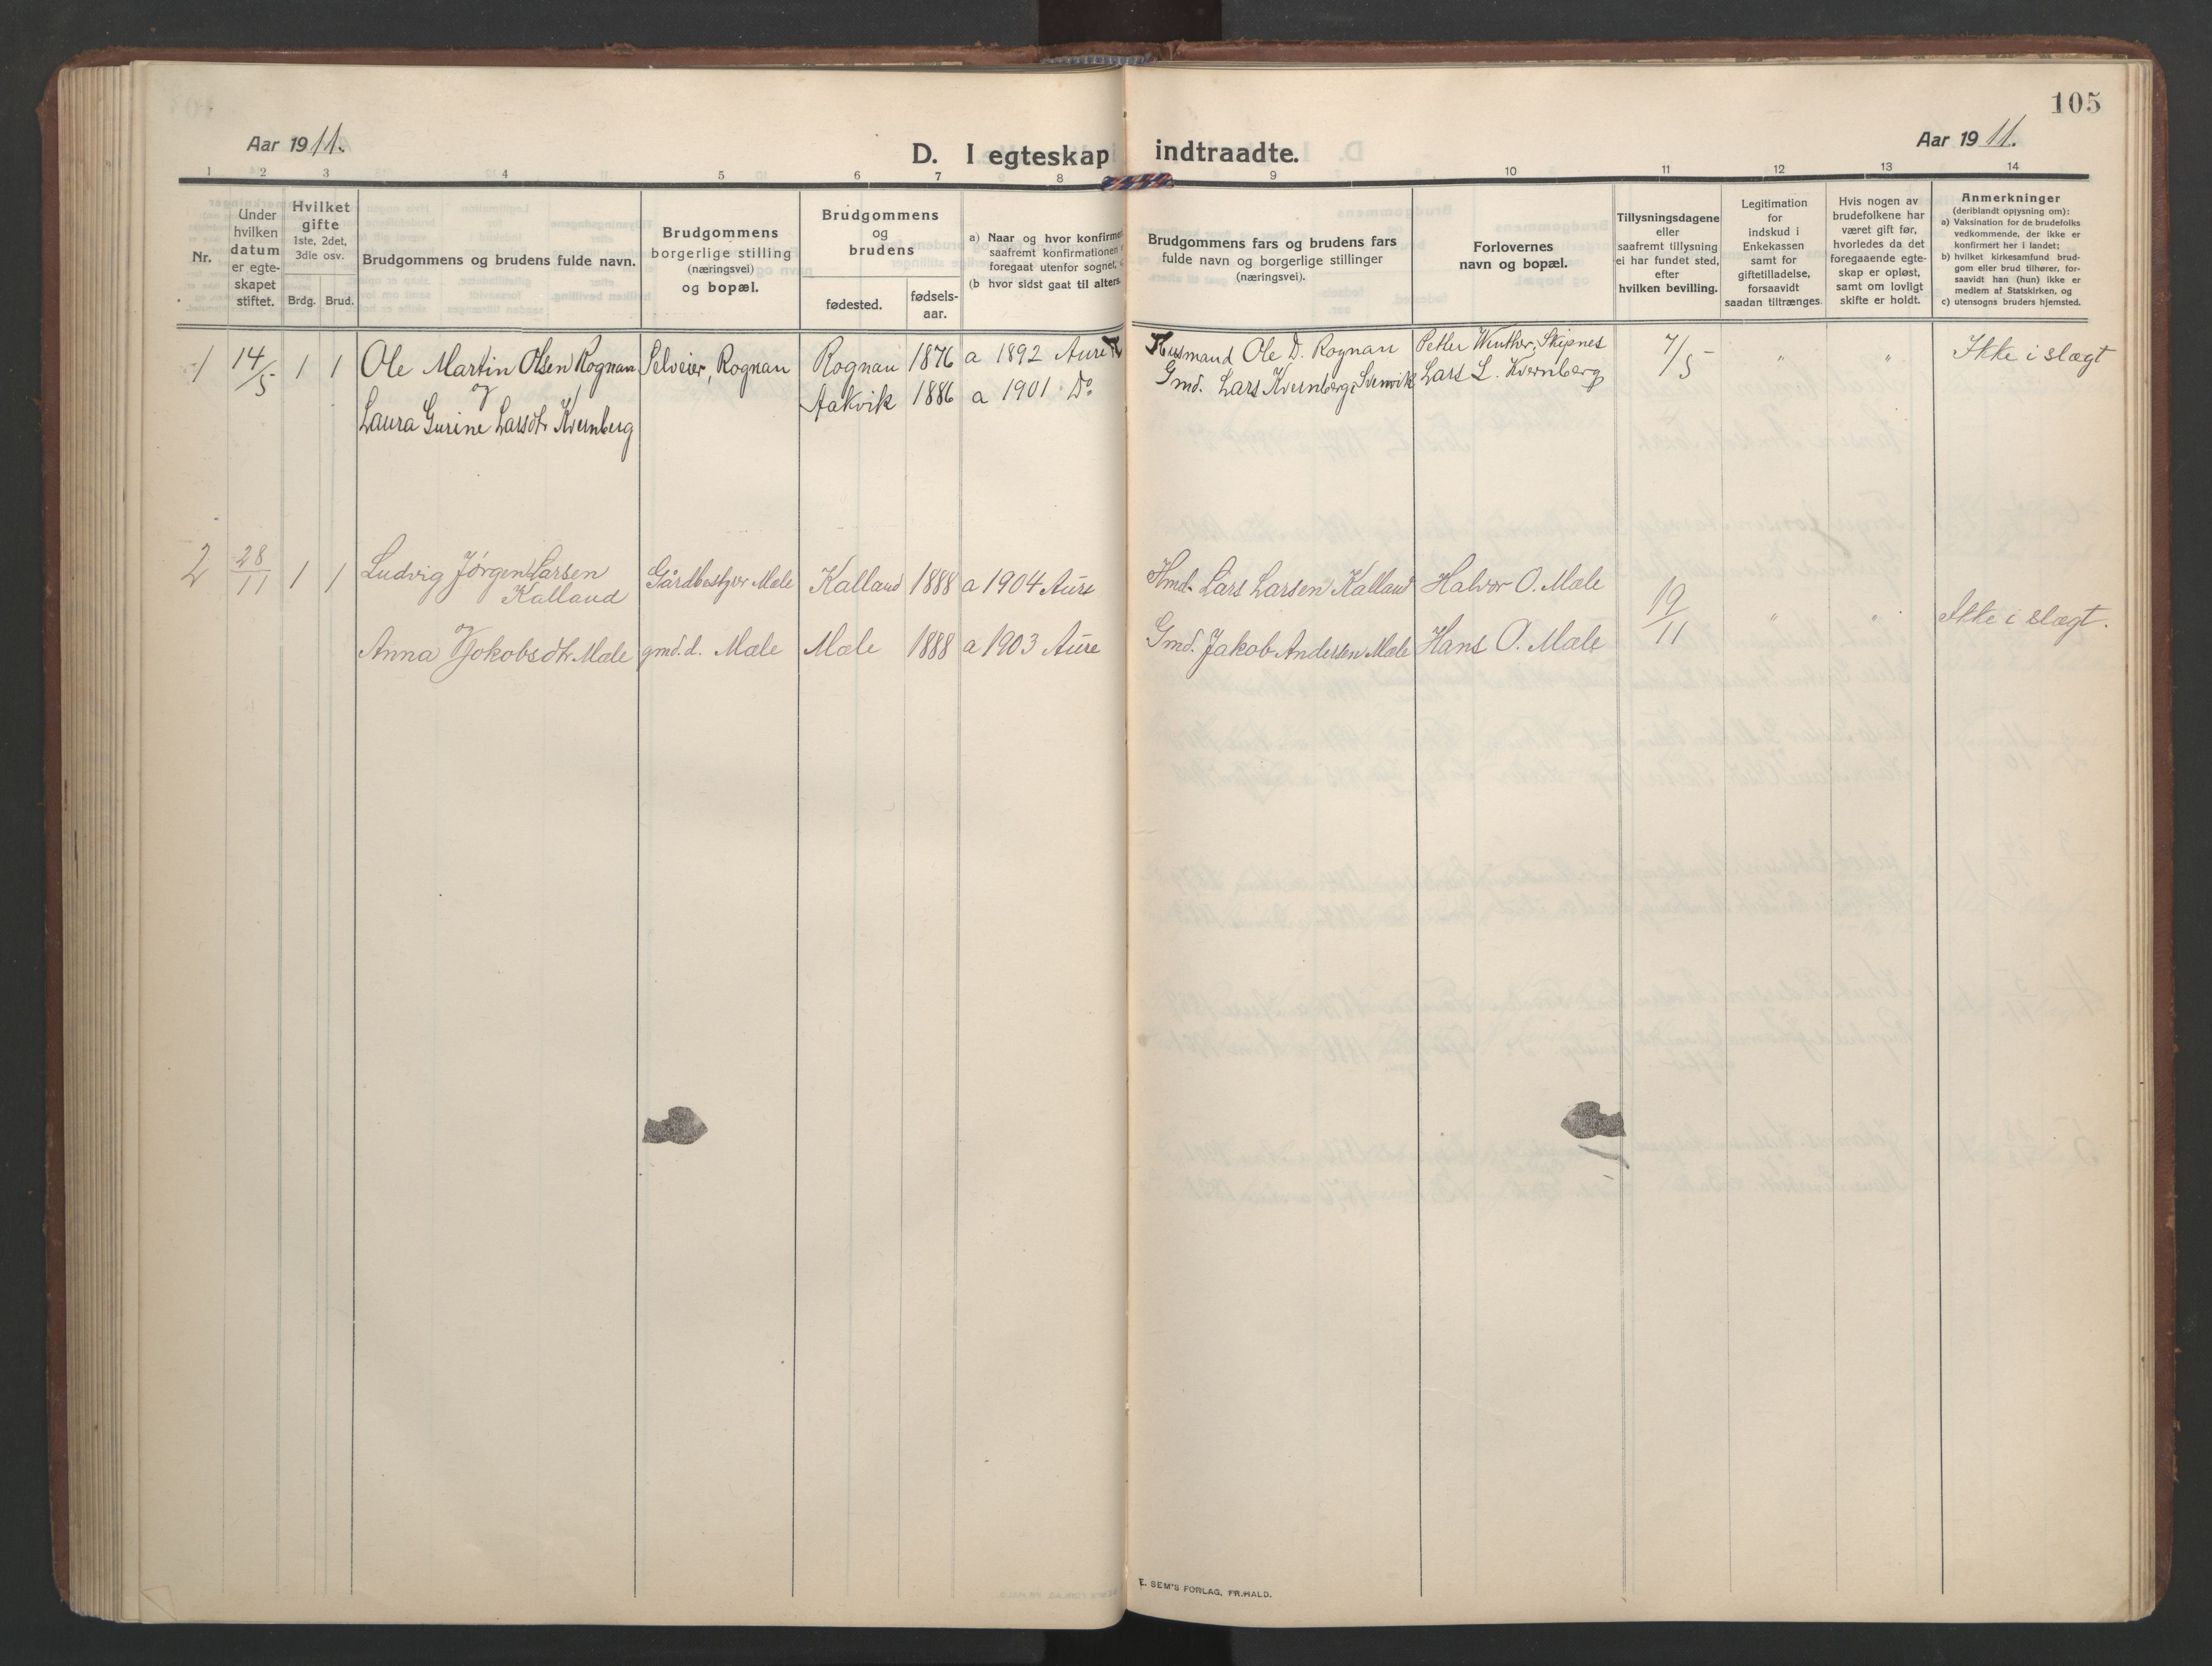 105
Aar 1911.
D. I egteskap indtraadte.
Aar 1911.
1 2 3 4 5 6 7 8 9 10 11 12 13 14
Nr.
Under
hvilken
datum
er egte-
skapet
stiftet.
Hvilket
gifte
1ste, 2det,
3die osv.
Brdg. Brud.
Brudgommens og brudens fulde navn.
Brudgommens
borgerlige stilling
(næringsvei)
og bopæl.
Brudgommens
og
brudens
fødested.
fødsels-
aar.
a) Naar og hvor konfirmer
saafremt konfirmationen
foregaat utenfor sognet,
(b hvor sidst gaat til alters.
Brudgommens fars og brudens fars
fulde navn og borgerlige stillinger
(næringsvei).
Forlovernes
navn og bopæl.
Tillysningsdagene
eller
saafremt tillysning
ei har fundet sted,
efter
hvilken bevilling.
Legitimation
for
indskud i
Enkekassen
samt for
giftetilladelse,
forsaavidt
saadan tiltrænges.
Hvis nogen av
brudefolkene har
været gift før,
hvorledes da det
foregaaende egte-
skap er opløst,
samt om lovligt
skifte er holdt.
Anmerkninger
(deriblandt opjysning om):
a) Vaksination for de brudefolks
vedkommende, der ikke er
konfirmert her i landet;
b) hvilket kirkesamfund brud-
gom eller brud tilhører, for-
saavidt han (hun) ikke er
medlem af Statskirken, og
c) utensogns bruders hjemsted.
1 14/5 1 1 Ole Martin Olsen Rognan Selveier, Rognan Rognan 1876 a 1892 Aure Husmand Ole D. Rognan Petter Winther, Skipnes 7/5 " " Ikke i slægt
og
Laura Gurine Larsdt. Kvernberg Aakvik 1886 a 1901 Do Gmd. Lars Kvernberg, Svinvik Lars L. Kvernberg
2 28/11 1 1 Ludvig Jörgen Larsen
Kalland Gårdbestyrer Mæle Kalland 1888 a 1904 Aure Hmd. Lars Larsen Kalland Halvor O. Mæle 19/11 " " Ikke i slægt.
og
Anna Jakobsdt. Mæle gmd.d. Mæle Mæle 1888 a 1903 Aure Gmd. Jakob Andersen Mæle Hans O. Mæle
E. SEM'S FORLAG, FR.HALD.